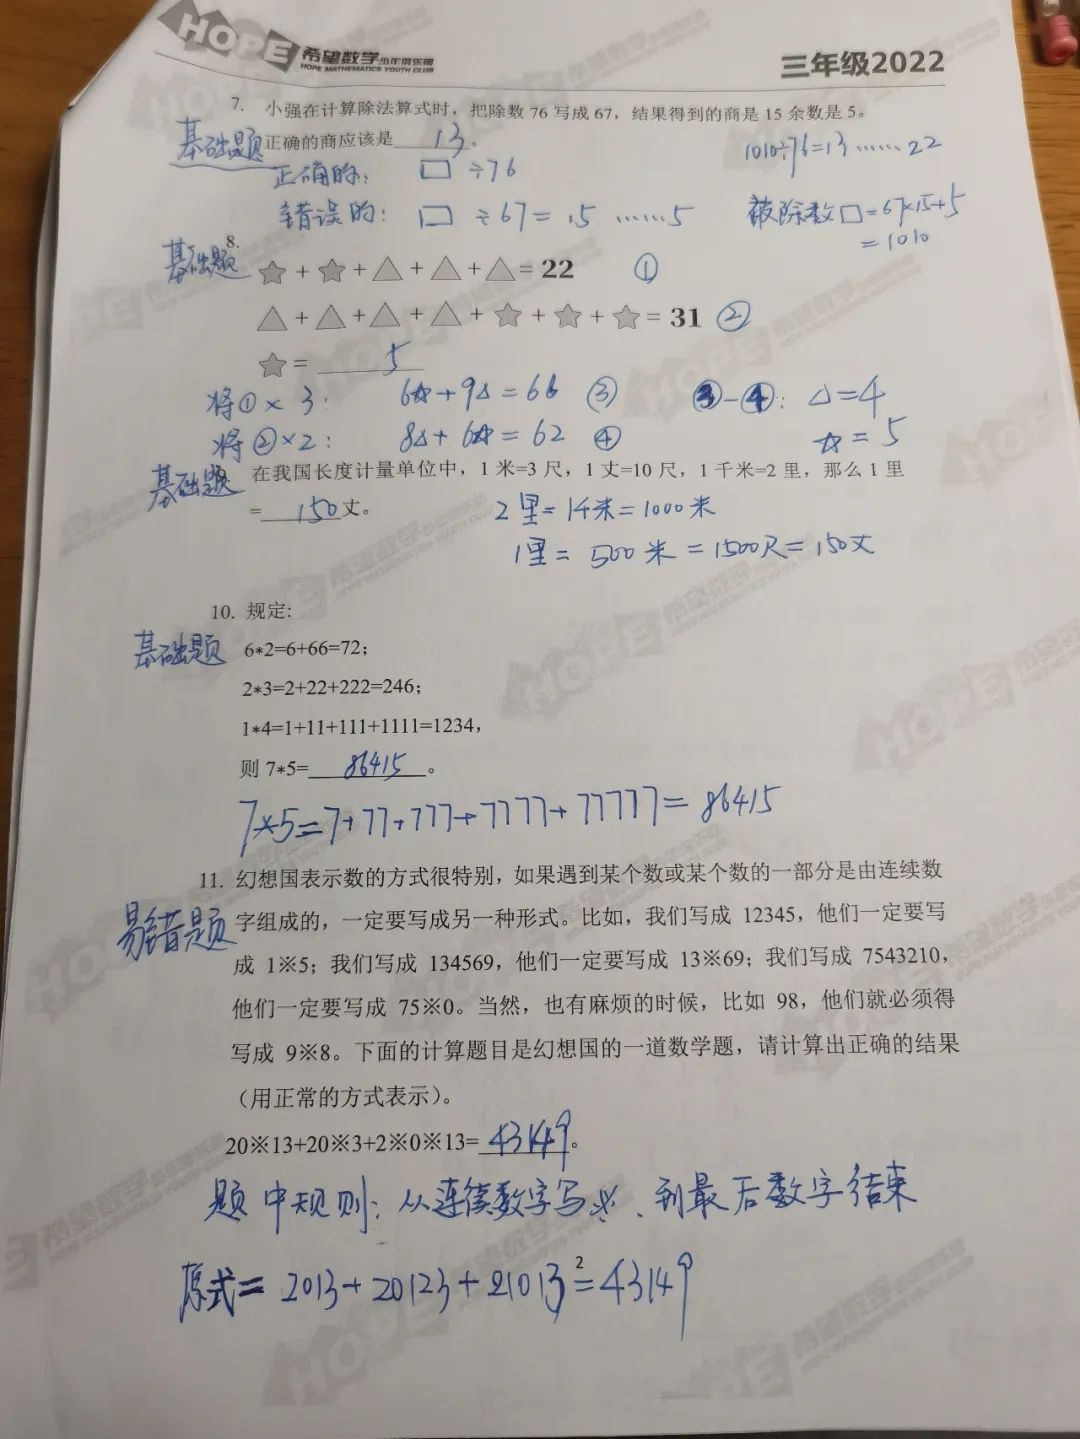 HOPE 希望数学少年俱乐部
HOPE MATHEMATICS YOUTH CLUB
三年级2022
7. 小强在计算除法算式时，把除数 76 写成 67，结果得到的商是 15 余数是 5。
基础题 正确的商应该是 13 。
1010÷76=13……22
正确的： □ ÷76
错误的： □ ÷67=15……5
被除数□=67×15+5
=1010
8.
基础题
☆+☆+△+△+△=22 ①
△+△+△+△+☆+☆+☆=31 ②
☆= 5
将①×3： 6☆+9△=66 ③ ③-④：△=4
将②×2： 8△+6☆=62 ④ ☆=5
基础题 在我国长度计量单位中，1 米=3 尺，1 丈=10 尺，1 千米=2 里，那么 1 里
= 150 丈。
2里=1千米=1000米
1里=500米=1500尺=150丈
10. 规定:
基础题 6*2=6+66=72；
2*3=2+22+222=246；
1*4=1+11+111+1111=1234，
则 7*5= 86415 。
7*5=7+77+777+7777+77777=86415
11. 幻想国表示数的方式很特别，如果遇到某个数或某个数的一部分是由连续数
易错题 字组成的，一定要写成另一种形式。比如，我们写成 12345，他们一定要写
成 1※5；我们写成 134569，他们一定要写成 13※69；我们写成 7543210，
他们一定要写成 75※0。当然，也有麻烦的时候，比如 98，他们就必须得
写成 9※8。下面的计算题目是幻想国的一道数学题，请计算出正确的结果
（用正常的方式表示）。
20※13+20※3+2※0※13= 43149 。
题中规则：从连续数字写※、到最后数字结束
原式=2013+20123+21013=43149
2